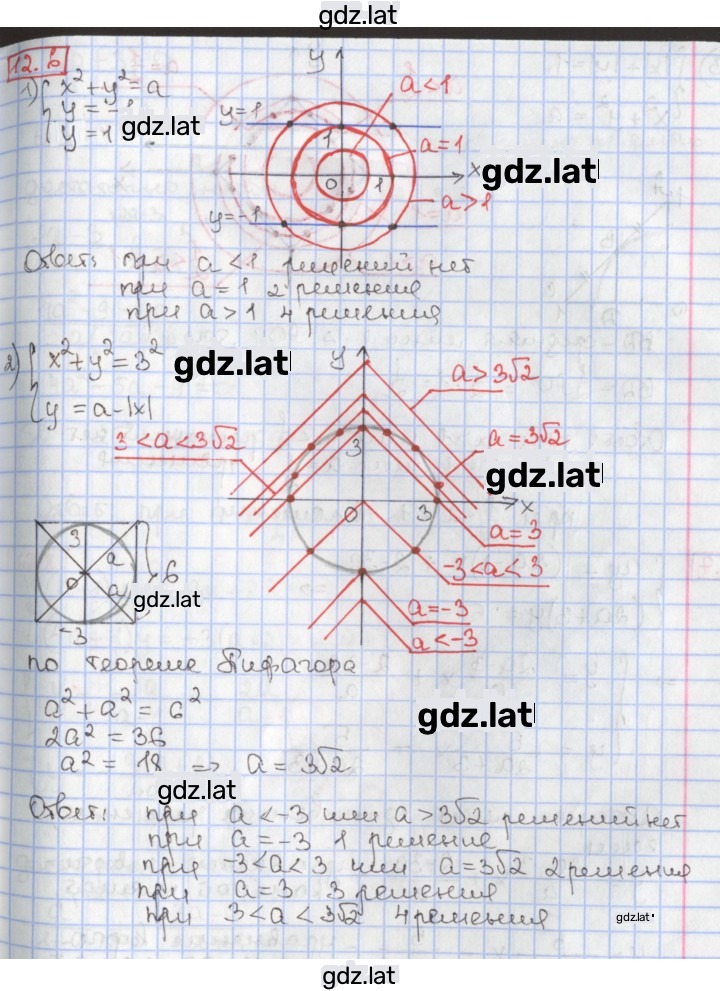 gdz.lat
12.6
1) { x² + y² = a
y = -1
y = 1
gdz.lat
y
a < 1
y=1
1
a = 1
x
gdz.lat
0
1
a > 1
y=-1
Ответ: при a < 1 решений нет
при a = 1 2 решения
при a > 1 4 решения
2) { x² + y² = 3²
y = a - |x|
gdz.lat
y
a > 3√2
3 < a < 3√2
3
a = 3√2
gdz.lat
0
3
x
a = 3
-3 < a < 3
a = -3
a < -3
3
a
0
a
6
-3
gdz.lat
по теореме Пифагора
a² + a² = 6²
2a² = 36
a² = 18 => a = 3√2
gdz.lat
gdz.lat
Ответ: при a < -3 или a > 3√2 решений нет
при a = -3 1 решение
при -3 < a < 3 или a = 3√2 2 решения
при a = 3 3 решения
при 3 < a < 3√2 4 решения
gdz.lat
gdz.lat